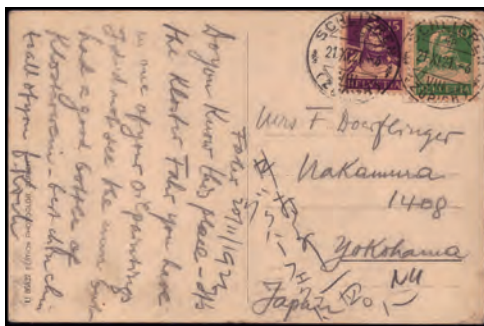 Fahr 20/11/1927
Do you know this place - it's
the Kloster Fahr you have
in one of your oil paintings
I did not see the nuns but
had a good bottle of
Klosterwein - best
to all of you
SCHLIEREN
21.XI.27
15
HELVETIA
HELVETIA
Mrs F. Doerflinger
Nakamura
1408
Yokohama
Japan